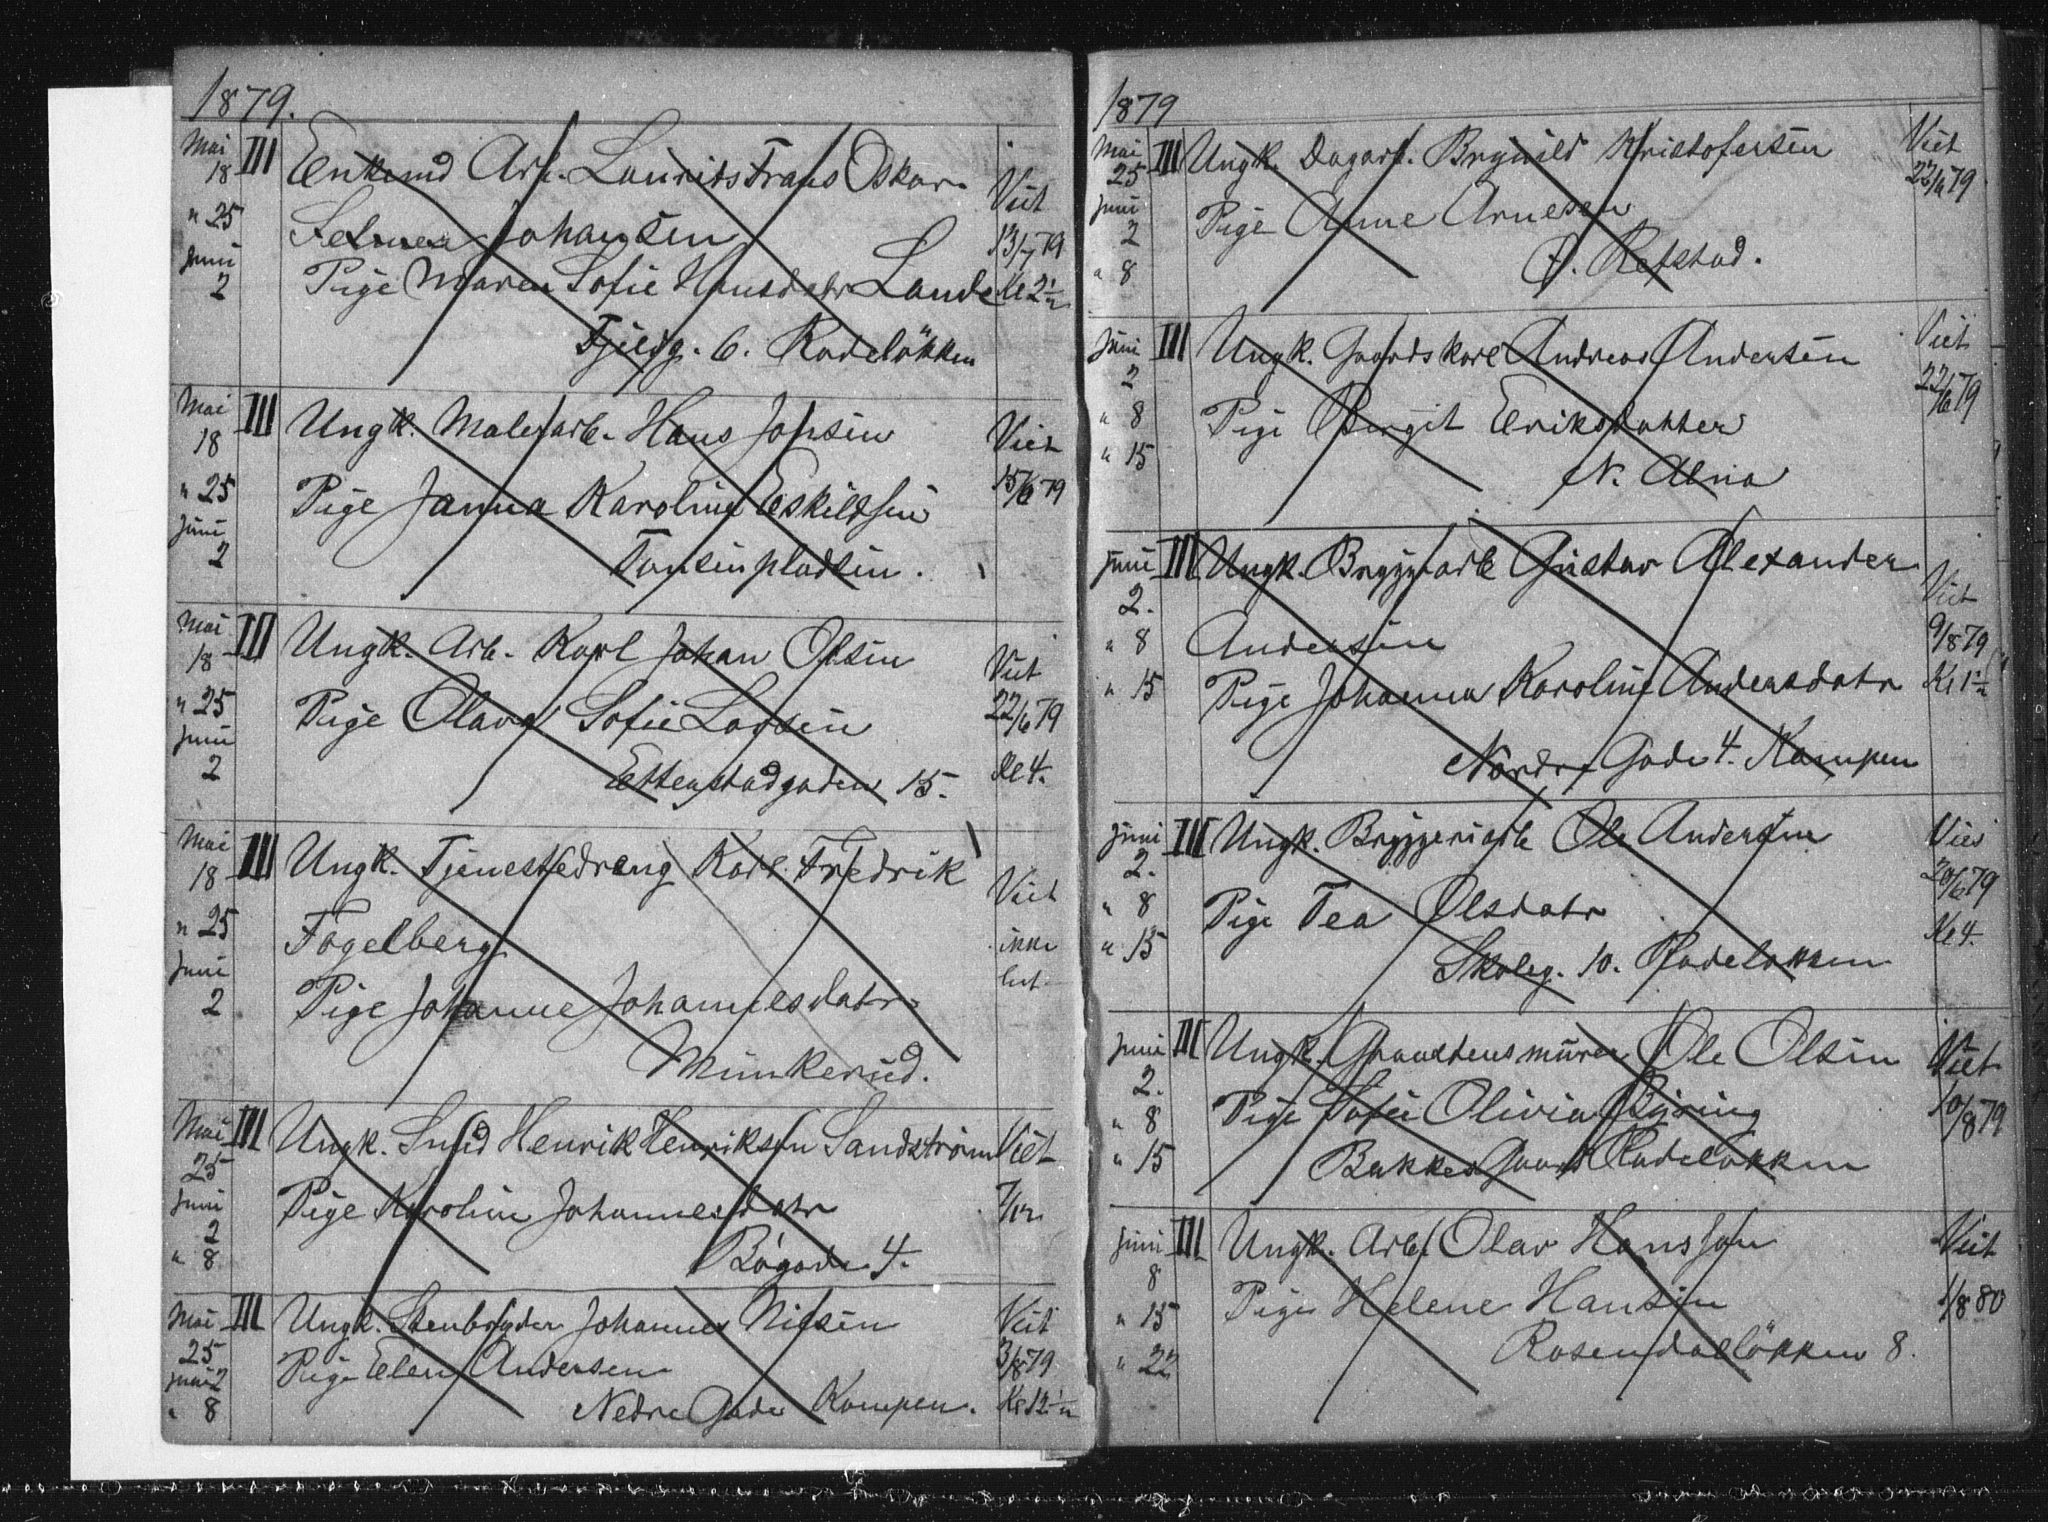 1879.
Mai 18 III Enkemd Arb. Laurits Frans Oskar
" 25 Johansen Viet 13/7 79
Juni 2 Pige Maren Sofie Hansdatr Lande Kl 2 1/2
Fjeldg. 6. Rodeløkken
Mai 18 III Ungk. Malerarb. Hans Jonsen Viet 15/6 79
" 25 Pige Janna Karoline Eskildsen
Juni 2
Mai 18 III Ungk. Arb. Karl Johan Olsen Viet
" 25 Pige Olava Sofie Larsen 22/6 79
Juni 2 Etterstadgaden 15. Kl 4.
Mai 18 III Ungk. Tjenestedreng Karl Fredrik Viet
" 25 Fogelberg ikke
Juni 2 Pige Johanne Johannesdatr
Munkerud.
Mai 25 III Ungk. Smed Henrik Henriksen Sandstrøm Viet
Juni 2 Pige Karoline Johannesdatr
" 8 Bøgade 4.
Mai 25 III Ungk. Stenbryder Johannes Nilsen Viet
Juni 2 Pige Elen Andersen 3/8 79
" 8 Nedre Gade Kampen. Kl 12 1/2
1879
Mai 25 III Ungk. Dagarb. Brynild Kristofersen Viet 22/6 79
Juni 2 Pige Anne Arnesen
" 8 Ø. Refstad.
Juni 2 III Ungk. Gaardskarl Andreas Andersen Viet 22/6 79
" 8 Pige Bergit Eriksdatter
" 15 N. Alna
Juni 2. III Ungk. Bryggeriarb Gustav Alexander Viet
" 8 Andersen 9/8 79
" 15 Pige Johanna Karoline Andersdatr Kl 1 1/2
Nordre Gade 4. Kampen
Juni 2. III Ungk. Bryggeriarb Ole Andersen Viet 20/6 79
" 8 Pige Tea Olsdatr Kl 4.
" 15 Skoleg. 10. Rodeløkken
Juni 2. III Ungk. Graastensmurer Ole Olsen Viet
" 8 Pige Sofie Olivia Bjøring 10/8 79
" 15 Bakkes Gaard Rodeløkken
Juni 8 III Ungk. Arb. Olav Hansson Viet
" 15 Pige Helene Hansen 1/8 80
" 22 Rosendalløkken 8.